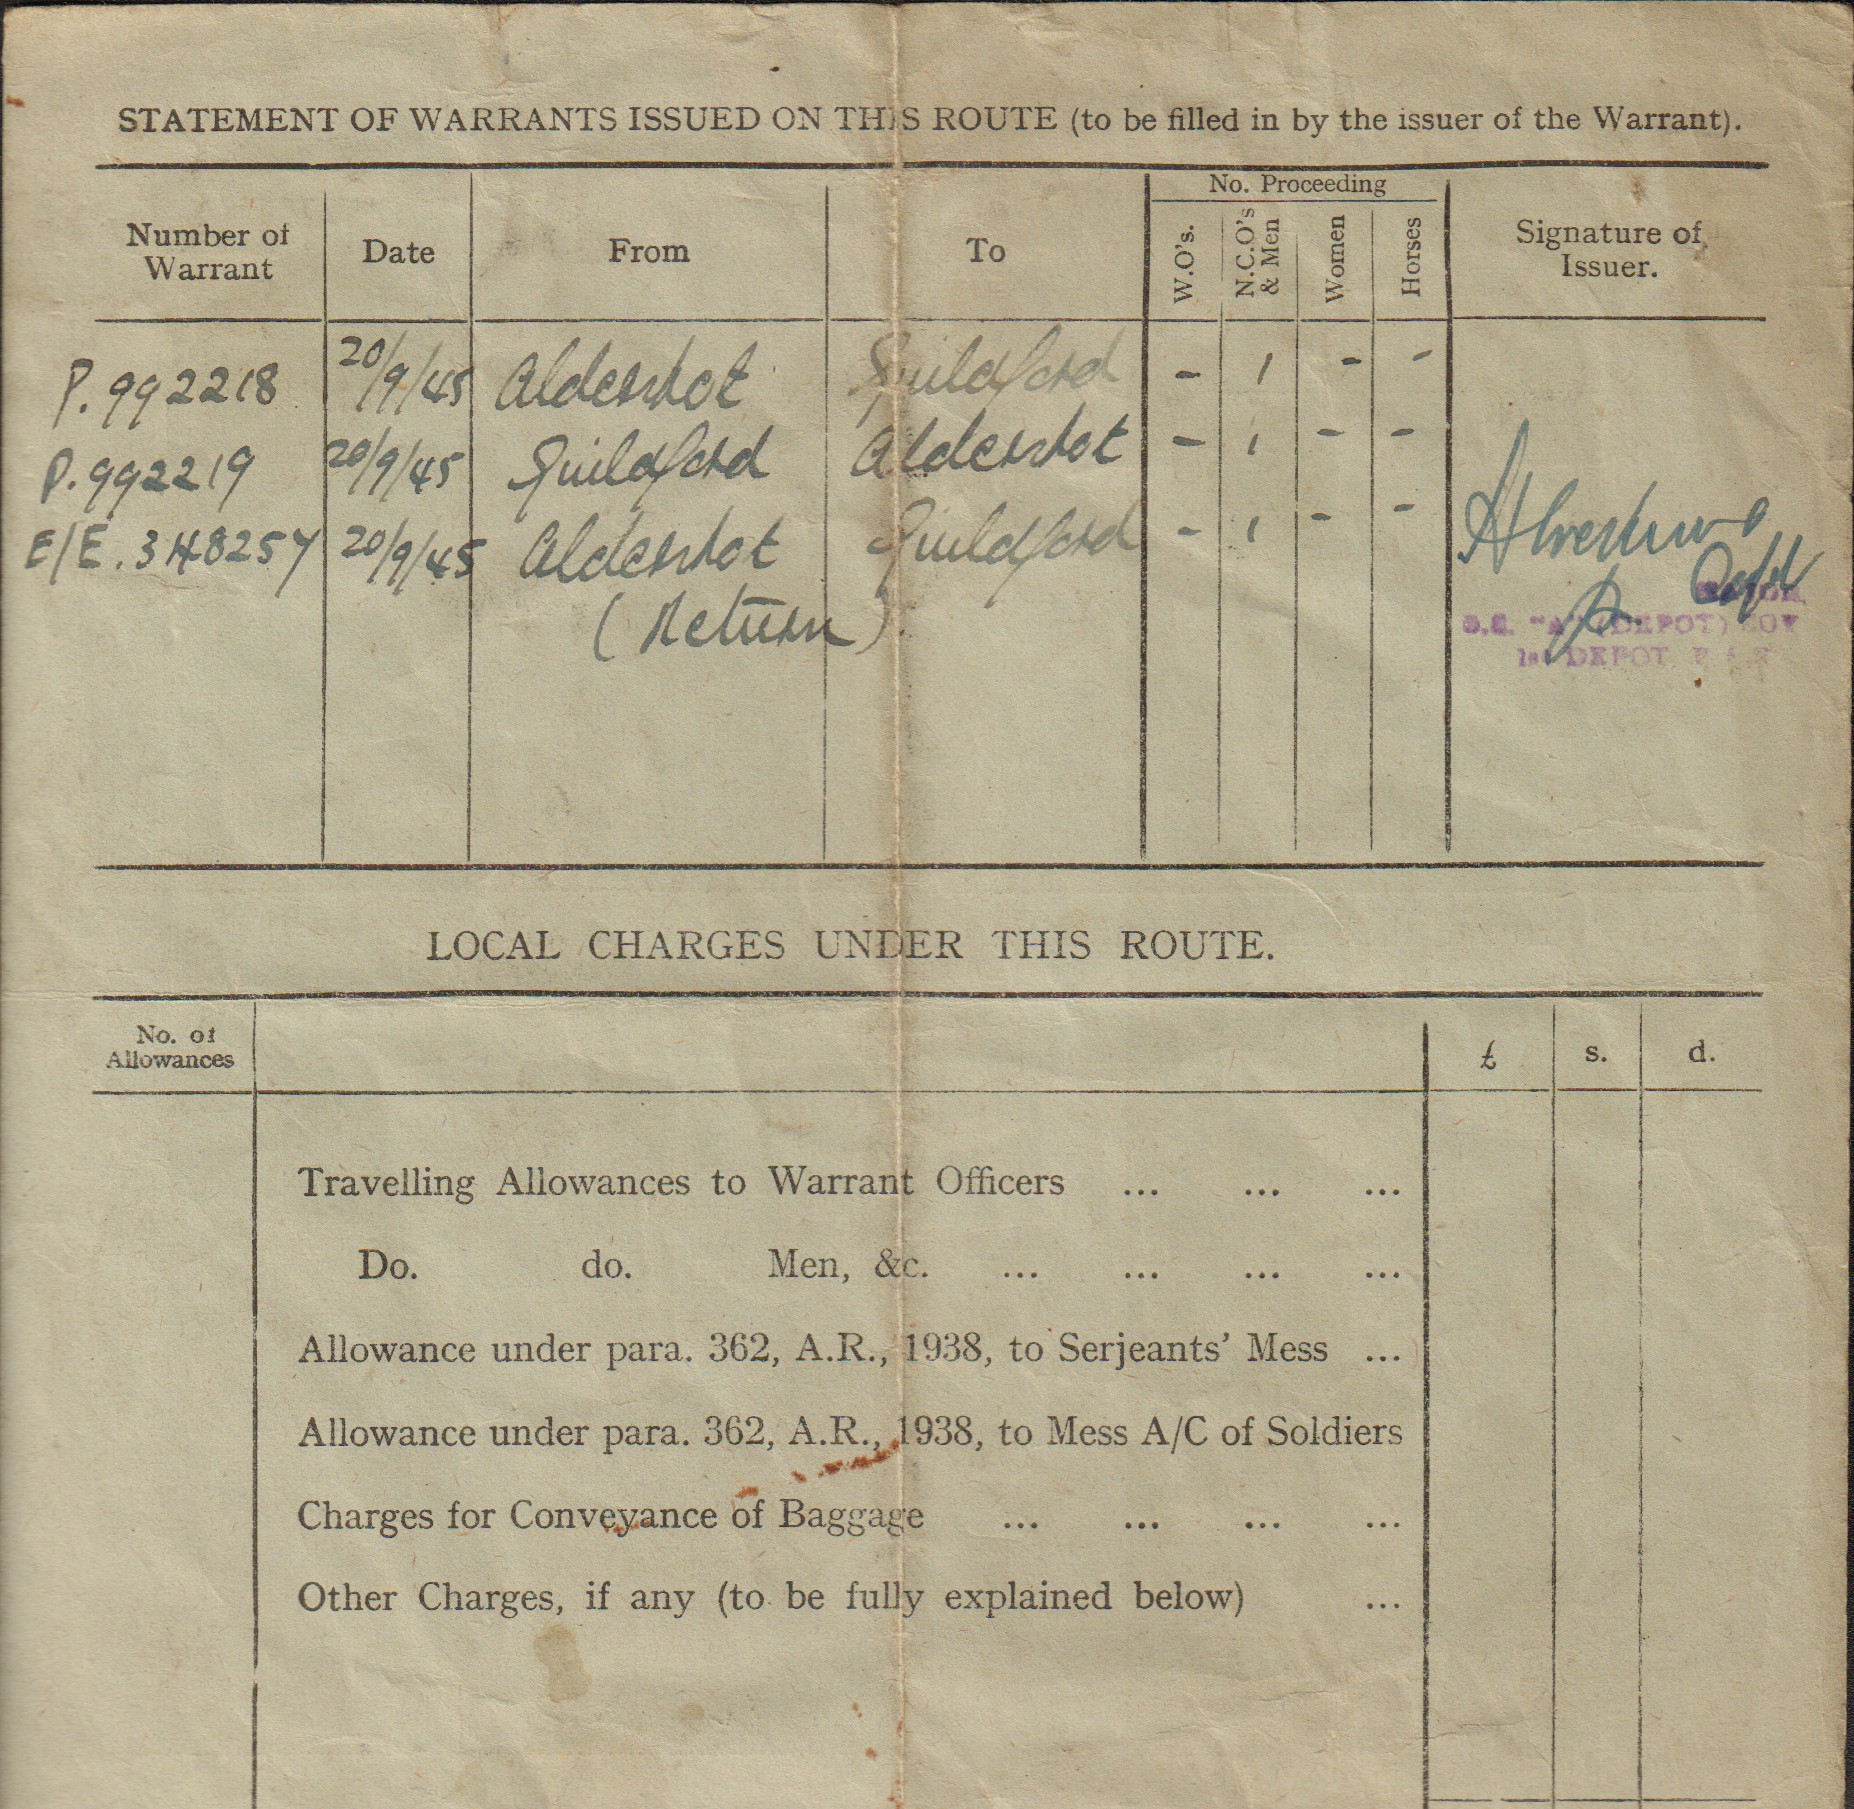 STATEMENT OF WARRANTS ISSUED ON THIS ROUTE (to be filled in by the issuer of the Warrant).
No. Proceeding
Number of Warrant Date From To W.O's. N.C.O's & Men Women Horses Signature of Issuer.
P. 992218 20/9/45 Aldershot Guildford - 1 - -
P. 992219 20/9/45 Guildford Aldershot - 1 - -
E/E. 348257 20/9/45 Aldershot Guildford - 1 - -
(Return)
Capt
O.C. "A" (DEPOT) COY
1st DEPOT
LOCAL CHARGES UNDER THIS ROUTE.
No. of Allowances £ s. d.
Travelling Allowances to Warrant Officers ... ... ...
Do. do. Men, &c. ... ... ... ...
Allowance under para. 362, A.R., 1938, to Serjeants' Mess ...
Allowance under para. 362, A.R., 1938, to Mess A/C of Soldiers
Charges for Conveyance of Baggage ... ... ... ...
Other Charges, if any (to be fully explained below) ...